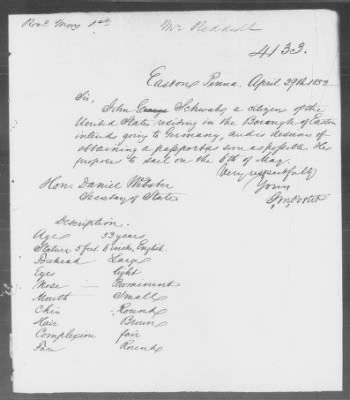 Recd May 1st
Mr Reddall
4133.
Easton Penna. April 29th 1852
Sir,
John Schwab, a citizen of the
United States residing in the Borough of Easton
intends going to Germany, and is desirous of
obtaining a passport as soon as possible. He
proposes to sail on the 6th of May.
Very respectfully
Yours
Hon Daniel Webster
Secretary of State
Description.
Age 33 years
Stature 5 feet 6 inches, English.
Forehead Large
Eyes light
Nose Prominent
Mouth Small
Chin Round
Hair Brown
Complexion fair
Face Round